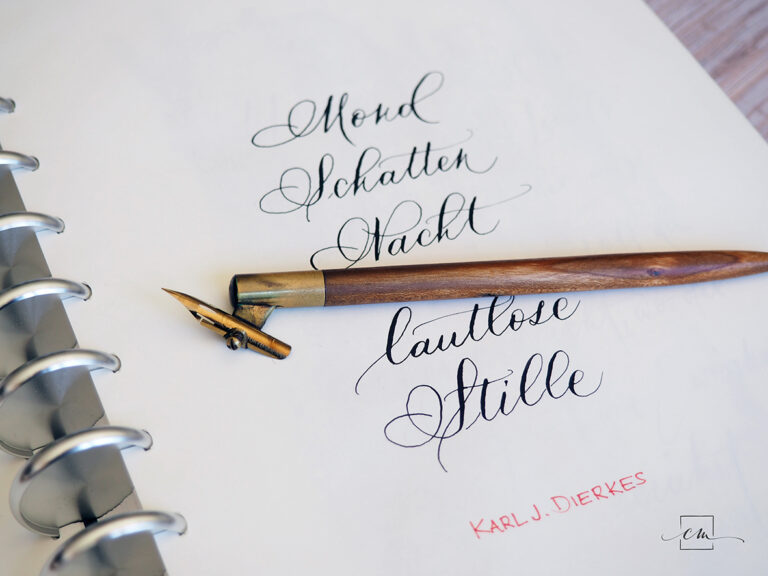 Mond
Schatten
Nacht
lautlose
Stille
KARL J. DIERKES
cm